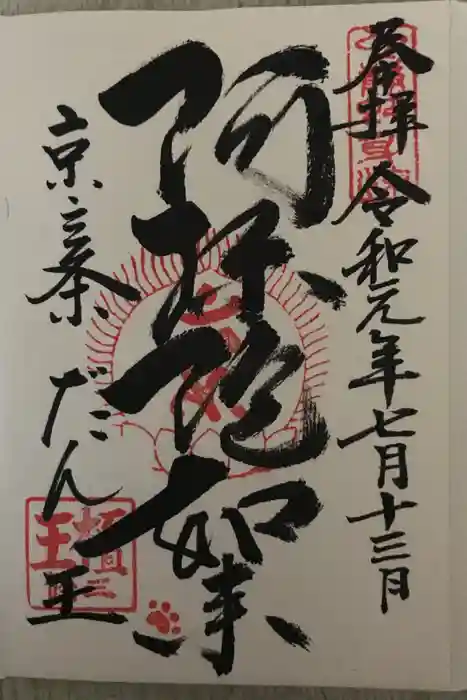 奉拝 令和元年七月十三日
阿弥陀如来
京三条 だん王
檀王